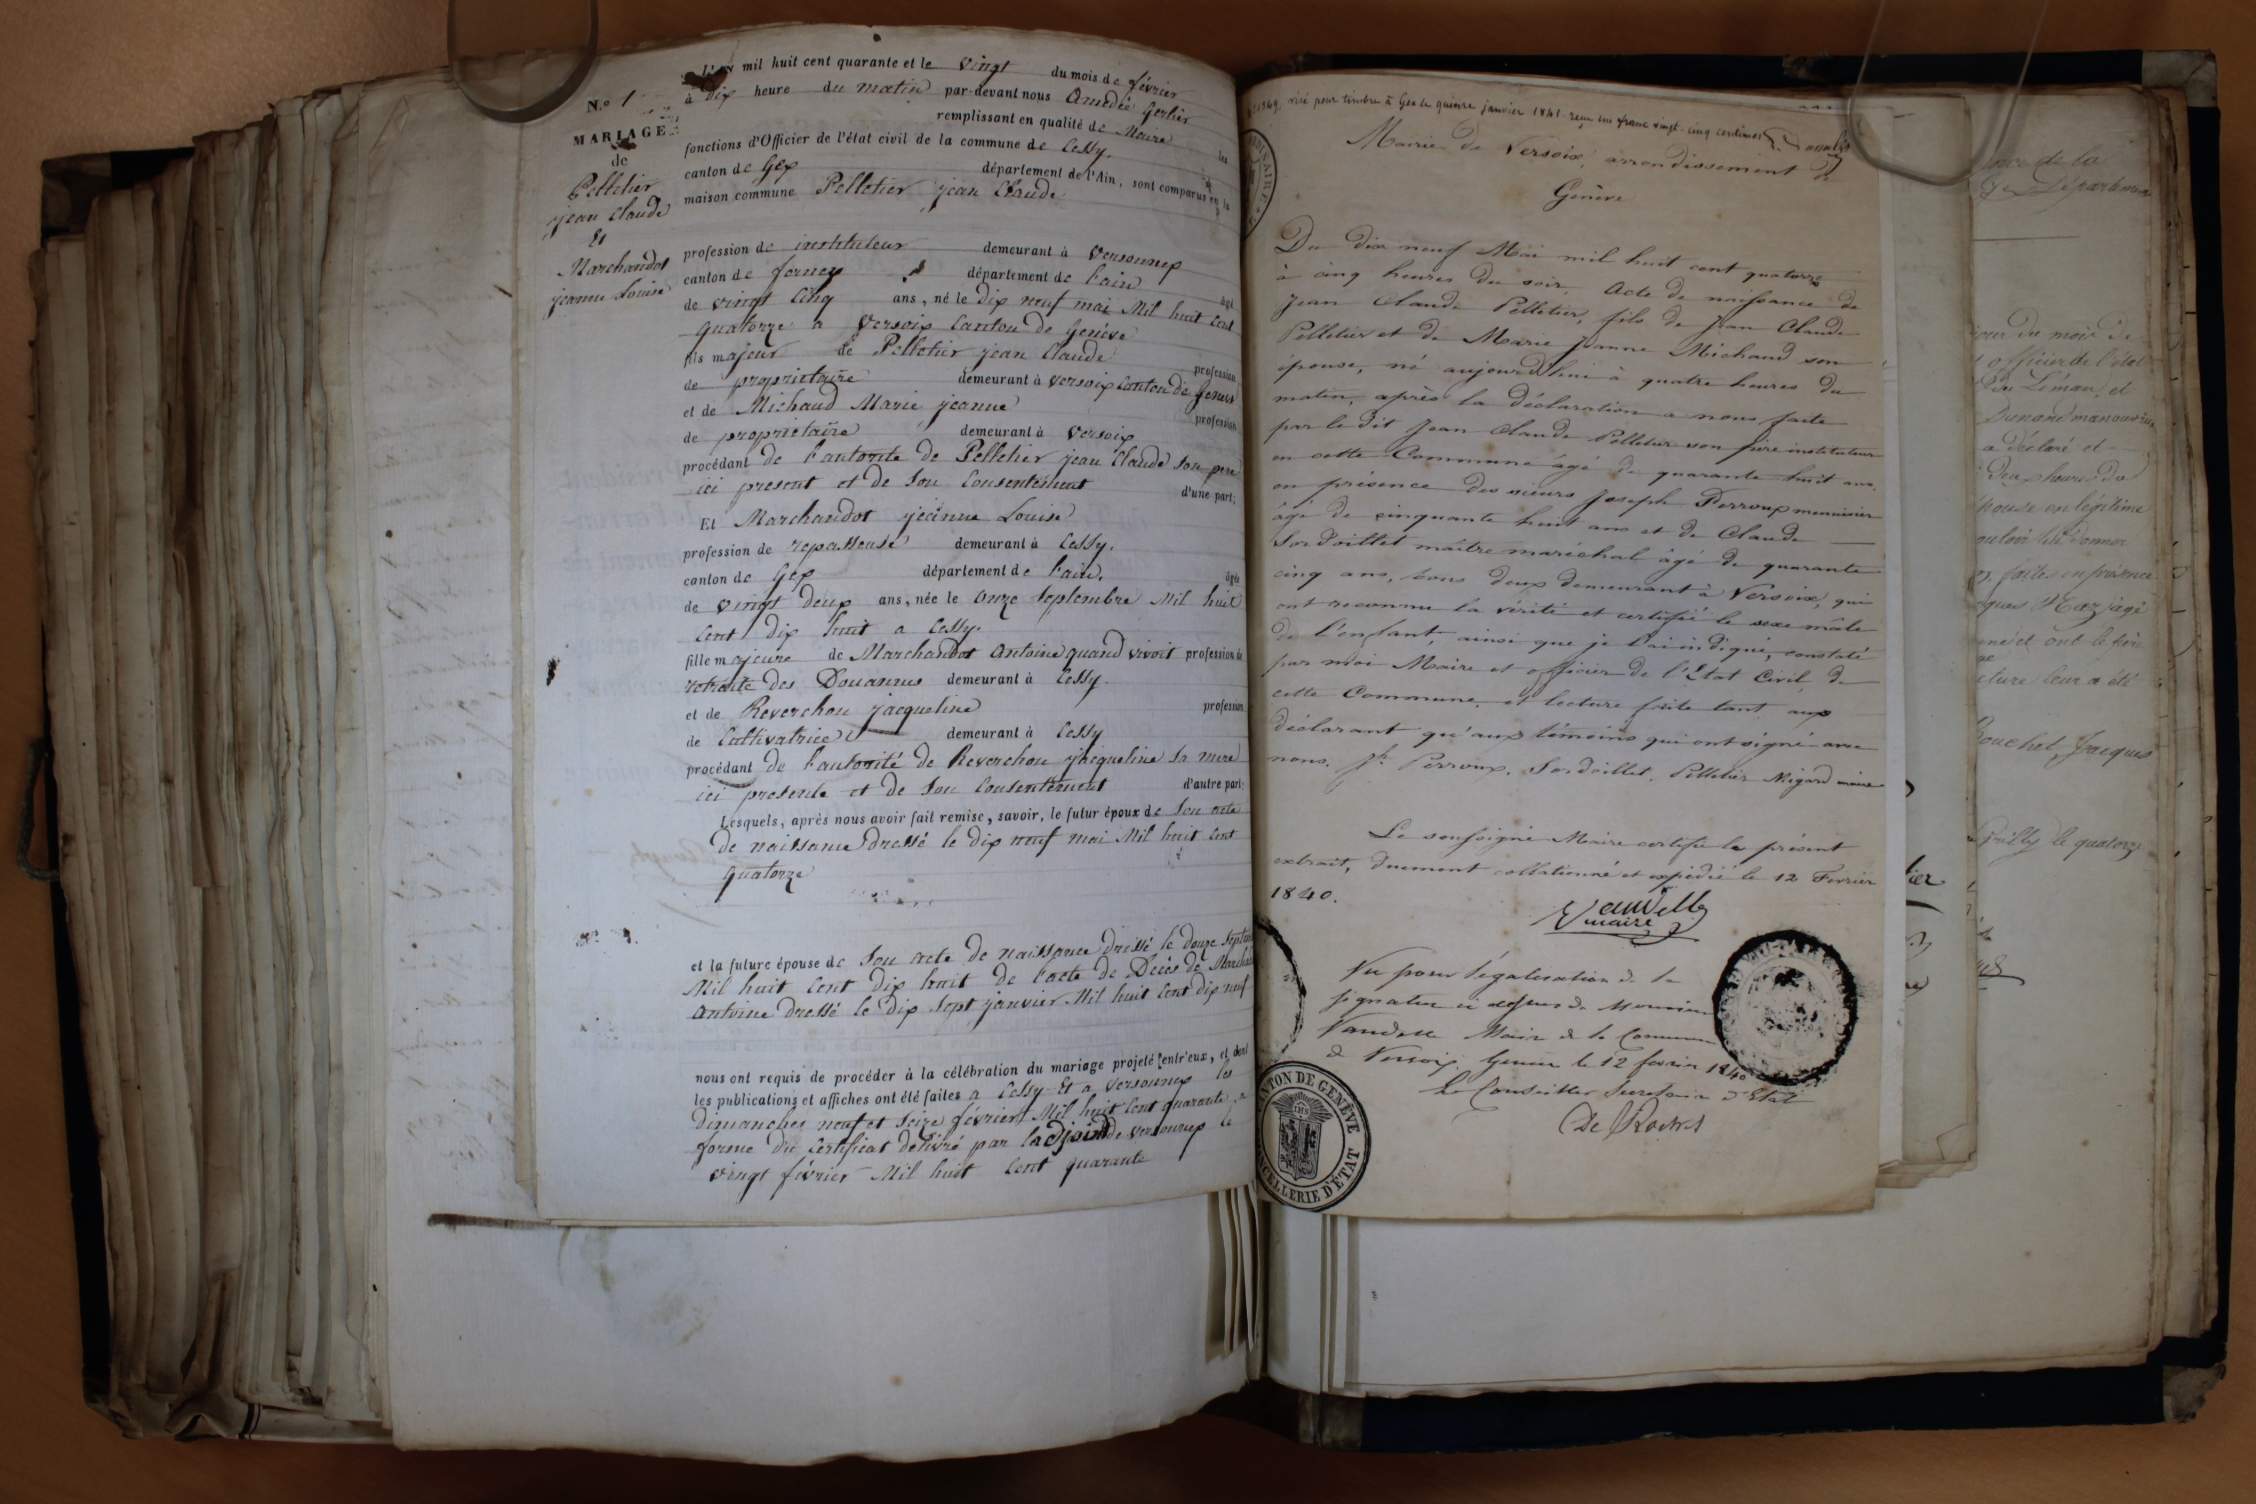 N.º 1
MARIAGE
de
Pelletier
jean Claude
Et
Marchandot
jeanne Louise
L'an mil huit cent quarante et le vingt du mois de février
à dix heure du matin par-devant nous Amédée Gerlier
remplissant en qualité de Maire les
fonctions d'Officier de l'état civil de la commune de Cessy.
canton de Gex département de l'Ain, sont comparus en la
maison commune Pelletier jean Claude
profession de instituteur demeurant à Versonnex
canton de ferney département de l'ain âgé
de vingt cinq ans, né le dix neuf mai Mil huit Cent
quatorze a Versoix Canton de Genève
fils majeur de Pelletier jean Claude profession
de propriétaire demeurant à versoix Canton de Genève
et de Michaud Marie jeanne profession
de propriétaire demeurant à Versoix
procédant de l'autorité de Pelletier jean Claude Son pere
ici present et de Son Consentement d'une part;
Et Marchandot jeanne Louise
profession de repasseuse demeurant à Cessy.
canton de Gex département de l'ain. âgée
de vingt deux ans, née le onze Septembre Mil huit
Cent dix huit a Cessy.
fille majeure de Marchandot Antoine quand vivoit profession de
retraite des Douannes demeurant à Cessy.
et de Reverchon jacqueline profession
de Cultivatrice demeurant à Cessy
procédant de l'autorité de Reverchon jacqueline Sa mere
ici presente et de Son Consentement d'autre part;
Lesquels, après nous avoir fait remise, savoir, le futur époux de Son acte
de naissance dressé le dix neuf mai Mil huit Cent
quatorze
et la future épouse de Son acte de naissance dressé le douze Septembre
Mil huit Cent dix huit de l'acte de Décès de
Antoine dressé le dix Sept janvier Mil huit Cent dix neuf
nous ont requis de procéder à la célébration du mariage projeté entr'eux, et dont
les publications et affiches ont été faites a Cessy Et a Versonnex les
Dimanches neuf et Seize février Mil huit Cent quarante
forme du Certificat délivré par l'adjoint de versonnex le
vingt février Mil huit Cent quarante
visé pour timbre à Gex le quinze janvier 1841 reçu un franc vingt-cinq centimes
Mairie de Versoix, arrondissement de
Genève
Du dix neuf Mai mil huit cent quatorze
à cinq heures du soir. Acte de naissance de
Jean Claude Pelletier, fils de Jean Claude
Pelletier et de Marie Jeanne Michaud son
épouse, né aujourd'hui à quatre heures du
matin, après la déclaration a nous faite
par le dit Jean Claude Pelletier son père instituteur
en cette Commune âgé de quarante huit ans,
en présence des sieurs Joseph Perroux menuisier
âgé de cinquante huit ans et de Claude
Sordoillet maître maréchal âgé de quarante
cinq ans, tous deux demeurant à Versoix, qui
ont reconnu la vérité et certifié le sexe mâle
de l'enfant, ainsi que je l'ai indiqué, constaté
par moi Maire et officier de l'Etat Civil de
cette Commune, et lecture faite tant aux
déclarant qu'aux témoins qui ont signé avec
nous. Jh Perroux. Sordoillet. Pelletier Migard maire
Le soussigné Maire certifie le présent
extrait, duement collationné et expédié le 12 Fevrier
1840.
maire
Vu pour légalisation de la
signature ci dessus de Monsieur
Maire de la Commune
de Versoix. Genève le 12 fevrier 1840
Le Conseiller Secretaire d'Etat
CANTON DE GENÈVE
CHANCELLERIE D'ÉTAT
IHS
de la
Départemen
jour du mois de
officier de l'état
du Léman, et
a déclaré et
deux heures du
épouse en légitime
donner
faites en présence
âgé
lecture leur a été
Bouchet, Jacques
le quatorze